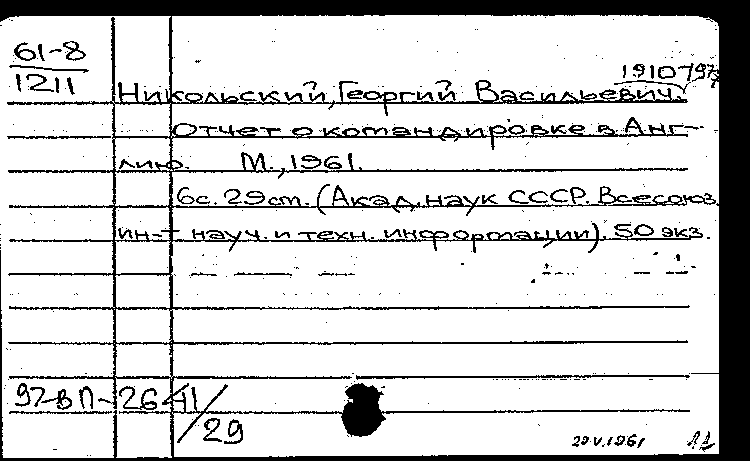 61-8
1211
1910
Никольский, Георгий Васильевич.
Отчет о командировке в Анг-
лию. М., 1961.
6с. 29см. (Акад. наук СССР. Всесоюз.
ин-т науч. и техн. информации). 50 экз.
97-ВП-2641/29
29.V.1961